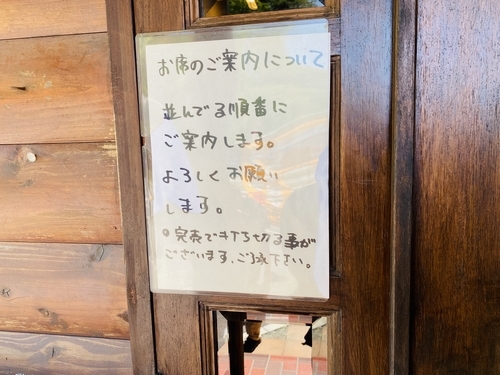 お席のご案内について
並んでる順番に
ご案内します。
よろしくお願い
します。
○完売で打ち切る事が
ございます、ご了承下さい。